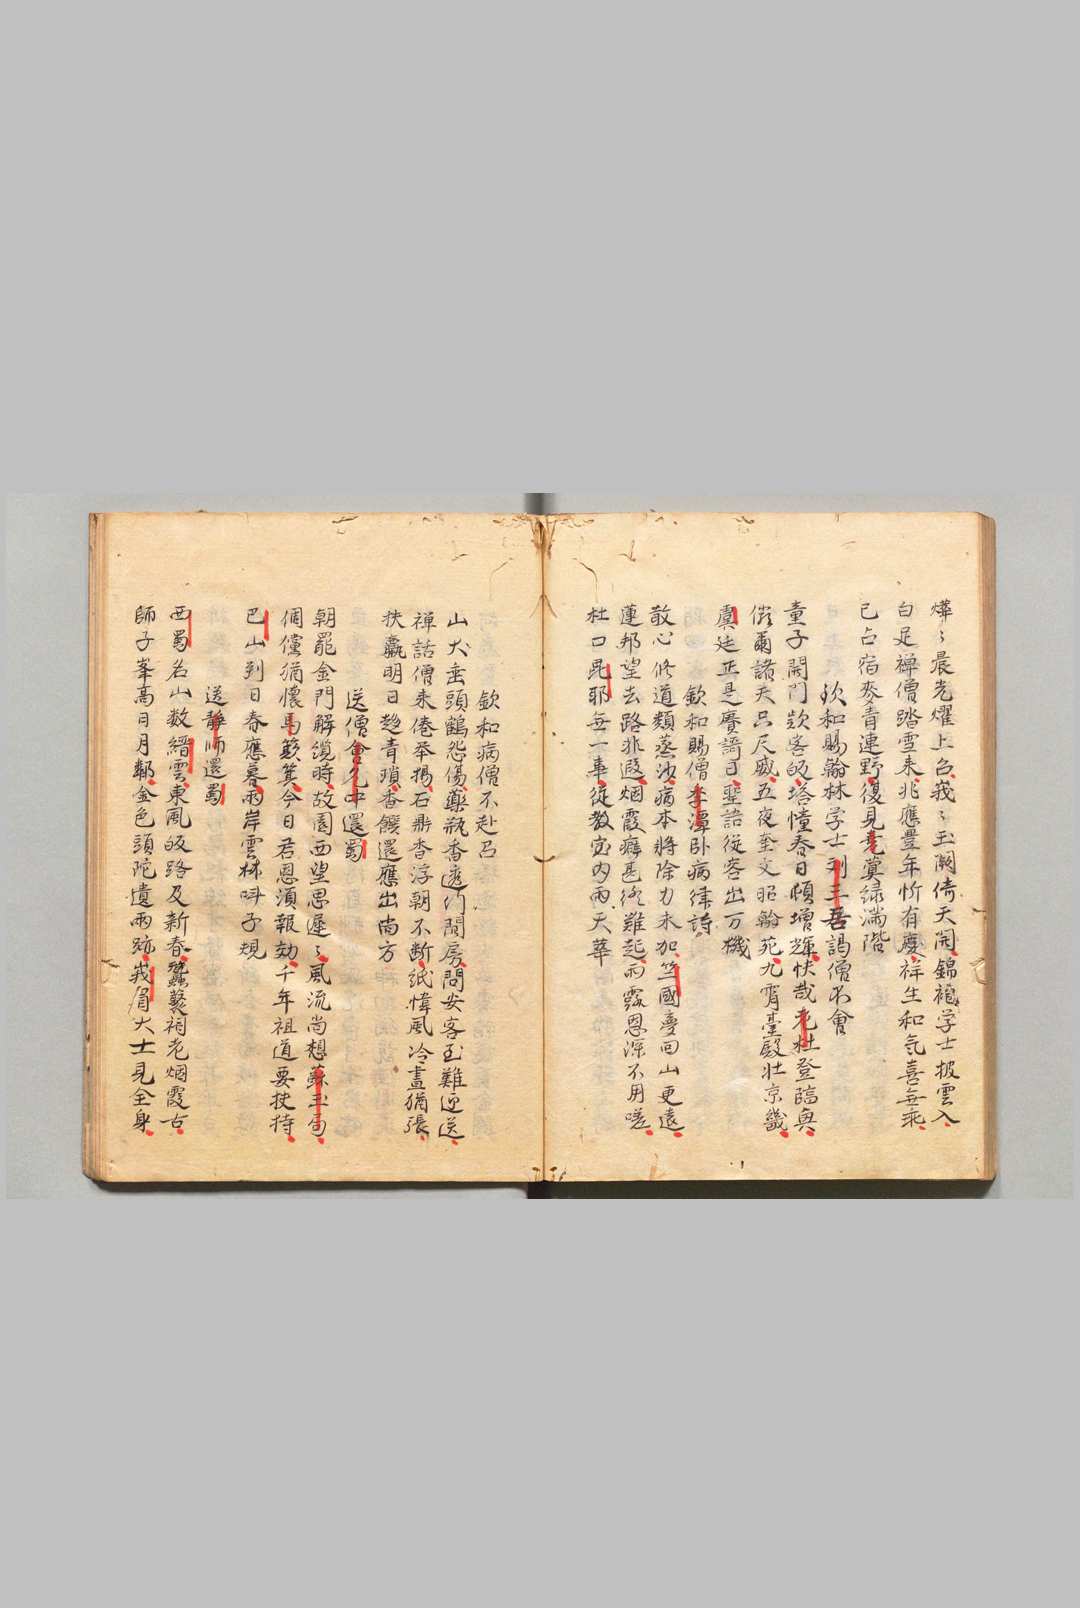 燁〻晨光燿上台峩〻玉闕倚天開錦袍学士披雲入
白足禅僧踏雪来兆應豊年忻有慶祥生和気喜無乖
已占宿麥青連野復見尭蓂緑満階
欽和賜翰林学士劉三吾謁僧不會
童子開門欵客皈塔幢春日頓增輝快哉老杜登臨興
儼爾諸天咫尺威五夜奎文昭翰苑九霄臺殿壯京畿
虞廷正是賡謌日聖語従容出万機
欽和賜僧李潭卧病律詩
散心修道類蒸沙病本將除力未加竺國夢回山更遠
蓮邦望去路非遐烟霞癖甚終難起雨露恩深不用嗟
杜口毘耶無一事従教室内雨天華
欽和病僧不赴召
山犬垂頭鶴怨傷藥瓶香透竹間房問安客到難迎送
禅話僧来倦举揚石鼎香浮朝不断紙幃風冷晝猶張
扶羸明日趍青瑣香饌還應出尚方
送僧會允中還蜀
朝罷金門解纜時故園西望思遲〻風流尚想蘇玉局
倜儻猶懐馬簸箕今日君恩須報効千年祖道要扶持
巴山到日春應暮兩岸雲林呌子規
送静師還蜀
西蜀名山数縉雲東風皈路及新春蠶叢祠老烟霞古
師子峯高日月鄰金色頭陀遺兩跡峩眉大士見全身